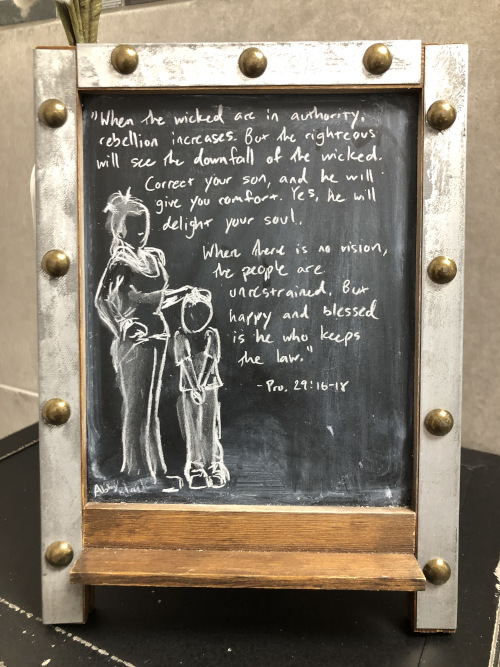 "When the wicked are in authority,
rebellion increases. But the righteous
will see the downfall of the wicked.
Correct your son, and he will
give you comfort. Yes, he will
delight your soul.
When there is no vision,
the people are
unrestrained. But
happy and blessed
is he who keeps
the law."
-Pro. 29:16-18